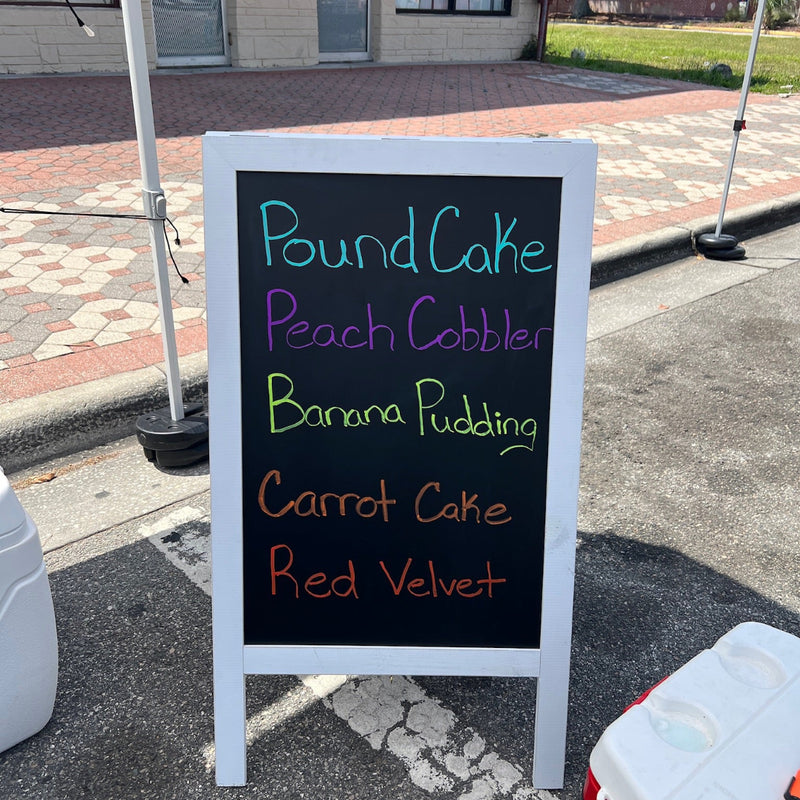 Pound Cake
Peach Cobbler
Banana Pudding
Carrot Cake
Red Velvet